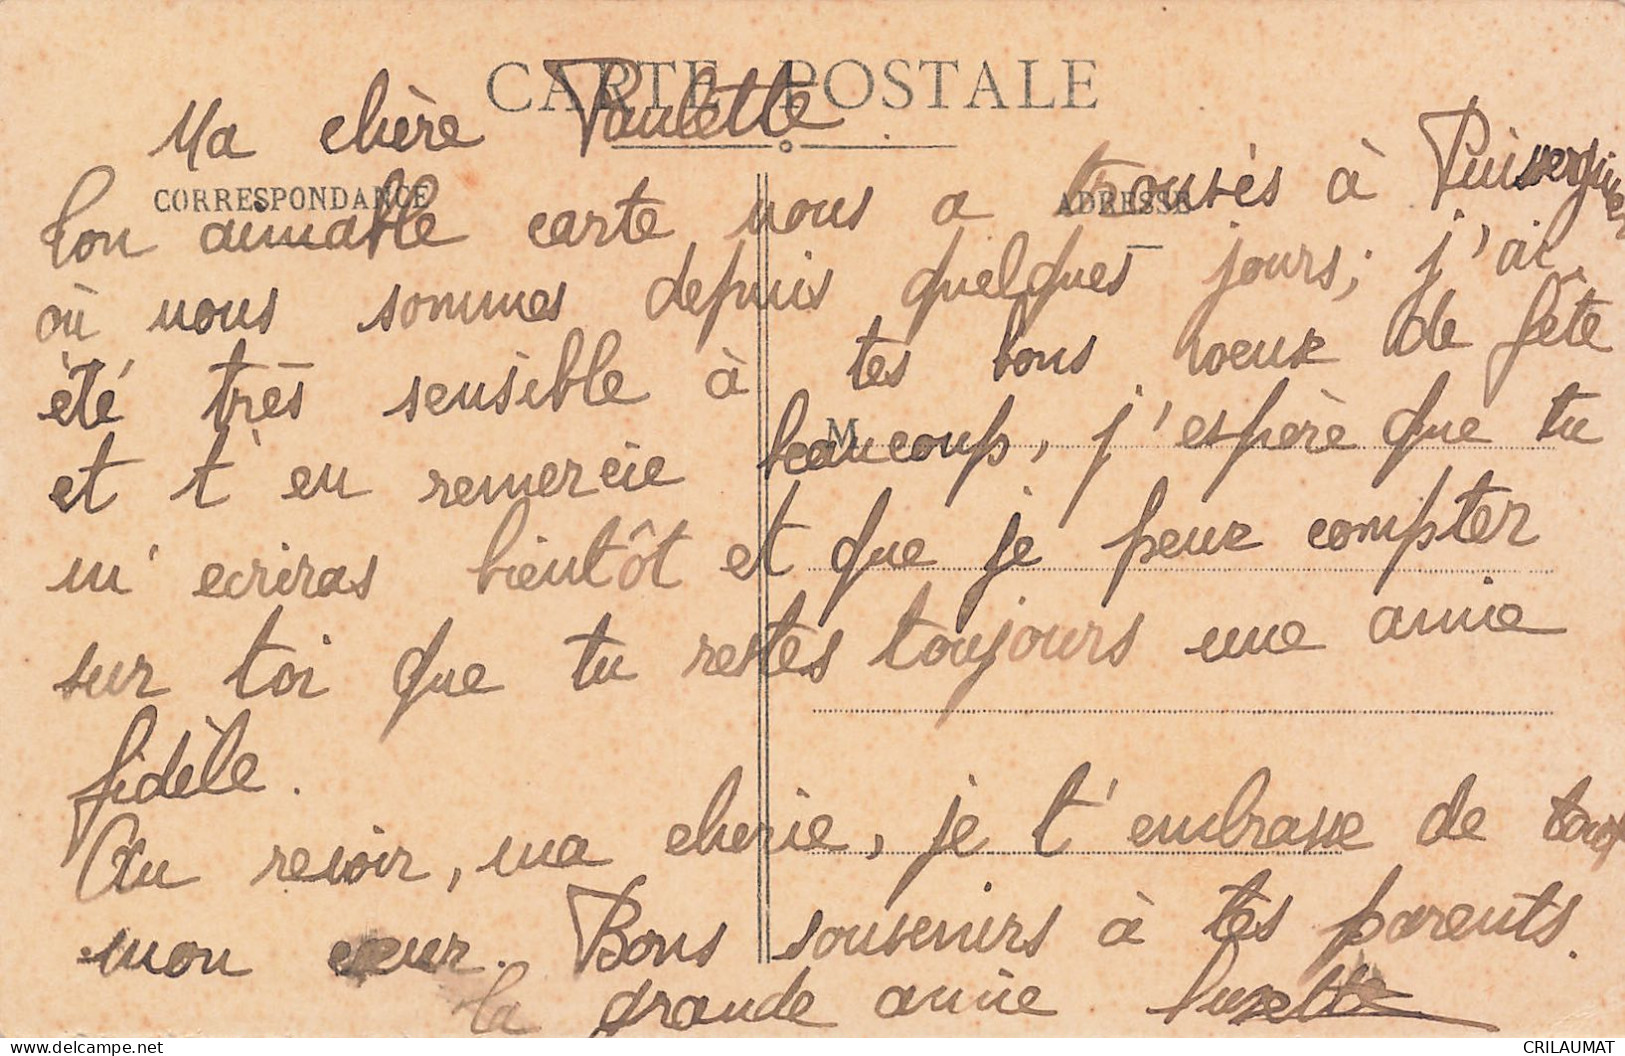 CARTE POSTALE
Ma chère Paulette
CORRESPONDANCE
ADRESSE
Ton aimable carte nous a trouvés à Puisserguier
où nous sommes depuis quelques jours; j'ai
été très sensible à tes bons voeux de fête
M
et t'en remercie beaucoup, j'espère que tu
m'ecriras bientôt et que je peux compter
sur toi que tu restes toujours une amie
fidèle.
Au revoir, ma cherie, je t'embrasse de tout
mon cœur. Bons souvenirs à tes parents.
ta grande amie Suzette
CRILAUMAT
www.delcampe.net